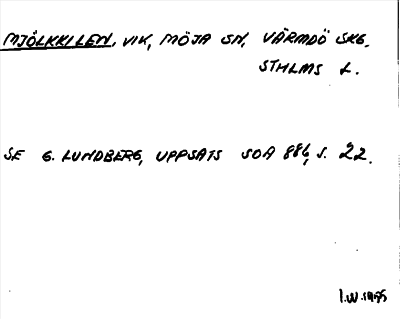 MJÖLKKILEN, VIK, MÖJA SN, VÄRMDÖ SKG.
STHLMS L.
SE G. LUNDBERG, UPPSATS SOA 886, S. 22.
I.W. 1975